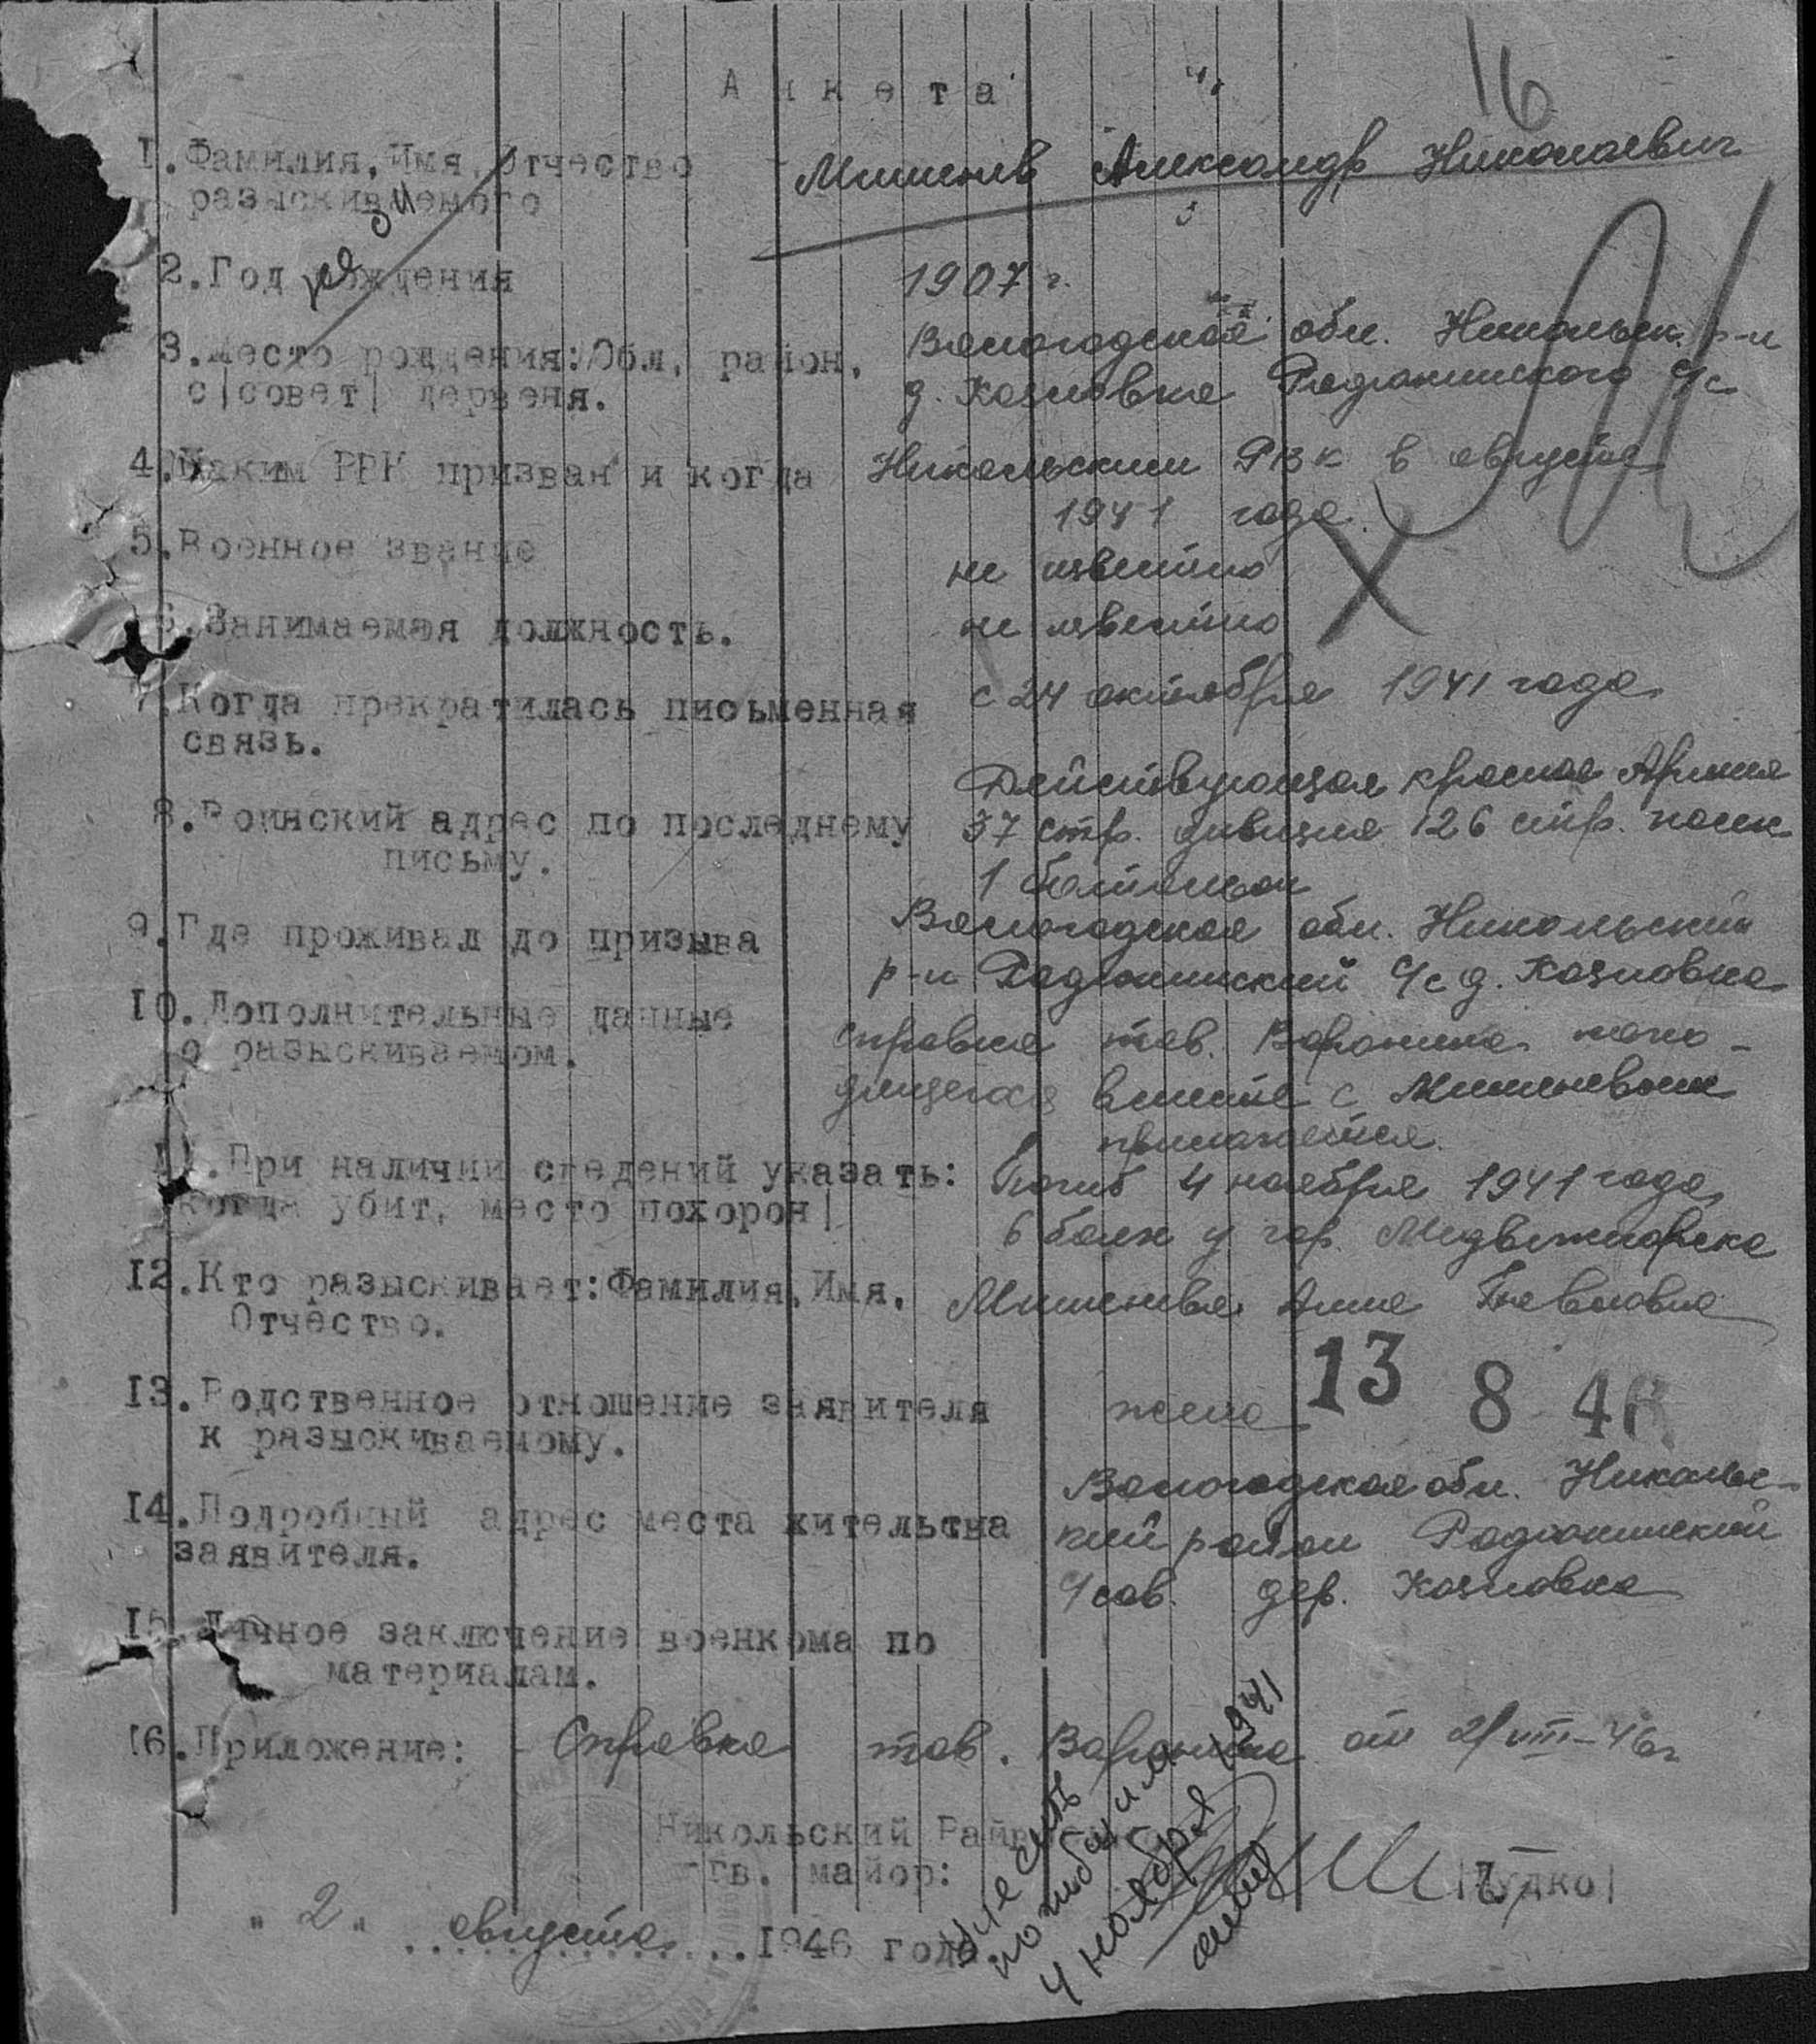 16
Анкета
1. Фамилия, Имя, Отчество Мишенев Александр Николаевич
разыскиваемого
2. Год рождения 1907 г.
3. Место рождения: Обл, район, Вологодская обл. Никольск. р-н
с|совет| дервеня. д. Козловка Радюкинского с/с
4. Каким РВК призван и когда Никольским РВК в августе
1941 года.
5. Военное звание не известно
6. Занимаемая должность. не известно
7. Когда прекратилась письменная с 24 октября 1941 года
связь.
Действующая красная Армия
8. Воинский адрес по последнему 37 стр. дивизия 126 стр. полк
письму. 1 батальон
9. Где проживал до призыва Вологодская обл. Никольский
р-н Радюкинский с/с д. Козловка
10. Дополнительные данные справка тов. Воронина нахо-
о разыскиваемом. дящегося вместе с Мишеневым
прилагается.
11. При наличии сведений указать: Погиб 4 ноября 1941 года
когда убит, место похорон| в бою у гор. Медвежьгорска
12. Кто разыскивает: Фамилия, Имя, Мишенева Анна Павловна
Отчество.
13. Родственное отношение заявителя жена
к разыскиваемому.
13 8 46
14. Подробный адрес места жительства Вологодская обл. Николь-
заявителя. кий район Радюкинский
с/сов. дер. Козловка
15. Личное заключение военкома по
материалам.
16. Приложение: - Справка тов. Воронина от 2/VIII-46г
Никольский
гв. майор: |Дудко|
"2" августа 1946 года
погибшим
4 ноября 1941